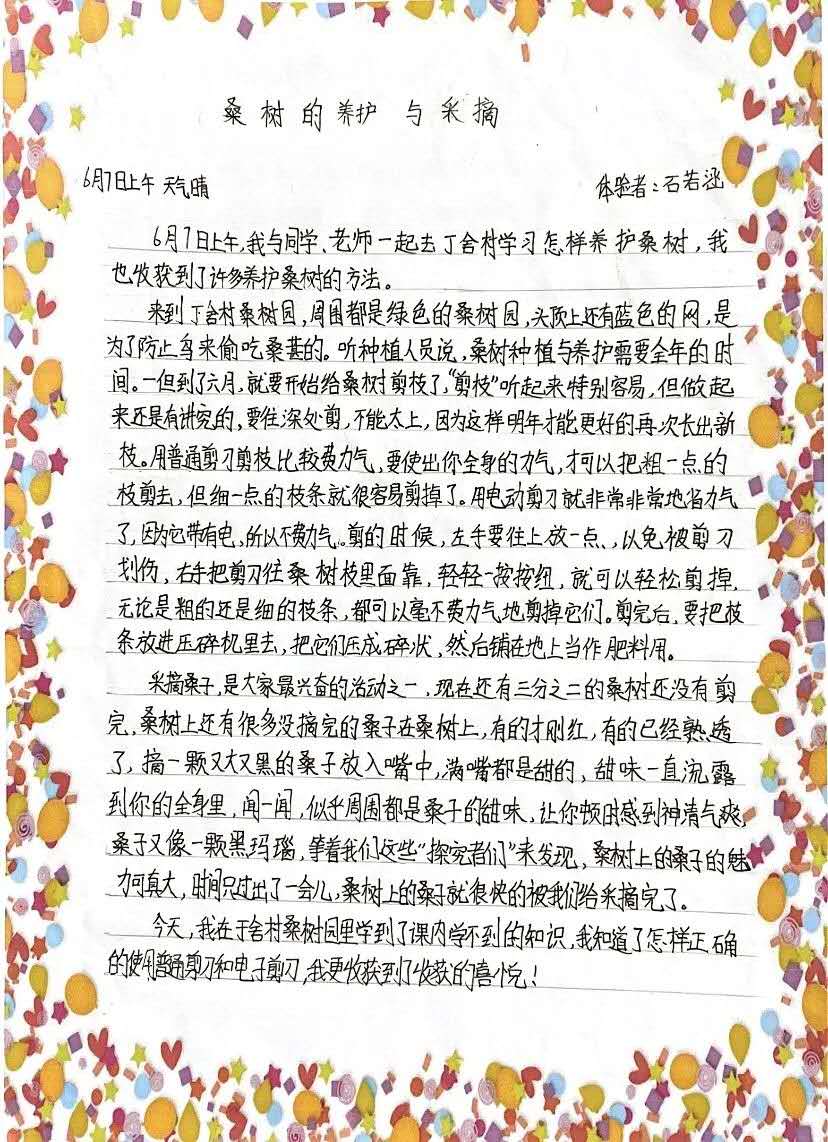 桑树的养护与采摘
6月7日上午 天气晴 体验者：石若涵
6月7日上午，我与同学、老师一起去丁舍村学习怎样养护桑树，我
也收获到了许多养护桑树的方法。
来到丁舍村桑树园，周围都是绿色的桑树园，头顶上还有蓝色的网，是
为了防止鸟来偷吃桑葚的。听种植人员说，桑树种植与养护需要全年的时
间。一但到了六月，就要开始给桑树剪枝了，“剪枝”听起来特别容易，但做起
来还是有讲究的，要往深处剪，不能太上，因为这样明年才能更好的再次长出新
枝。用普通剪刀剪枝比较费力气，要使出你全身的力气，才可以把粗一点的
枝剪去，但细一点的枝条就很容易剪掉了。用电动剪刀就非常非常地省力气
了，因为它带有电，所以不费力气。剪的时候，左手要往上放一点，以免被剪刀
划伤，右手把剪刀往桑树枝里面靠，轻轻一按按钮，就可以轻松剪掉，
无论是粗的还是细的枝条，都可以毫不费力气地剪掉它们。剪完后，要把枝
条放进压碎机里去，把它们压成碎状，然后铺在地上当作肥料用。
采摘桑子，是大家最兴奋的活动之一，现在还有三分之二的桑树还没有剪
完，桑树上还有很多没摘完的桑子在桑树上，有的才刚红，有的已经熟透
了，摘一颗又大又黑的桑子放入嘴中，满嘴都是甜的，甜味一直流露
到你的全身里，闻一闻，似乎周围都是桑子的甜味，让你顿时感到神清气爽，
桑子又像一颗黑玛瑙，等着我们这些“探究者们”来发现，桑树上的桑子的魅
力可真大，时间只过出了一会儿，桑树上的桑子就很快的被我们给采摘完了。
今天，我在丁舍村桑树园里学到了课内学不到的知识，我知道了怎样正确
的使用普通剪刀和电子剪刀，我更收获到了收获的喜悦！